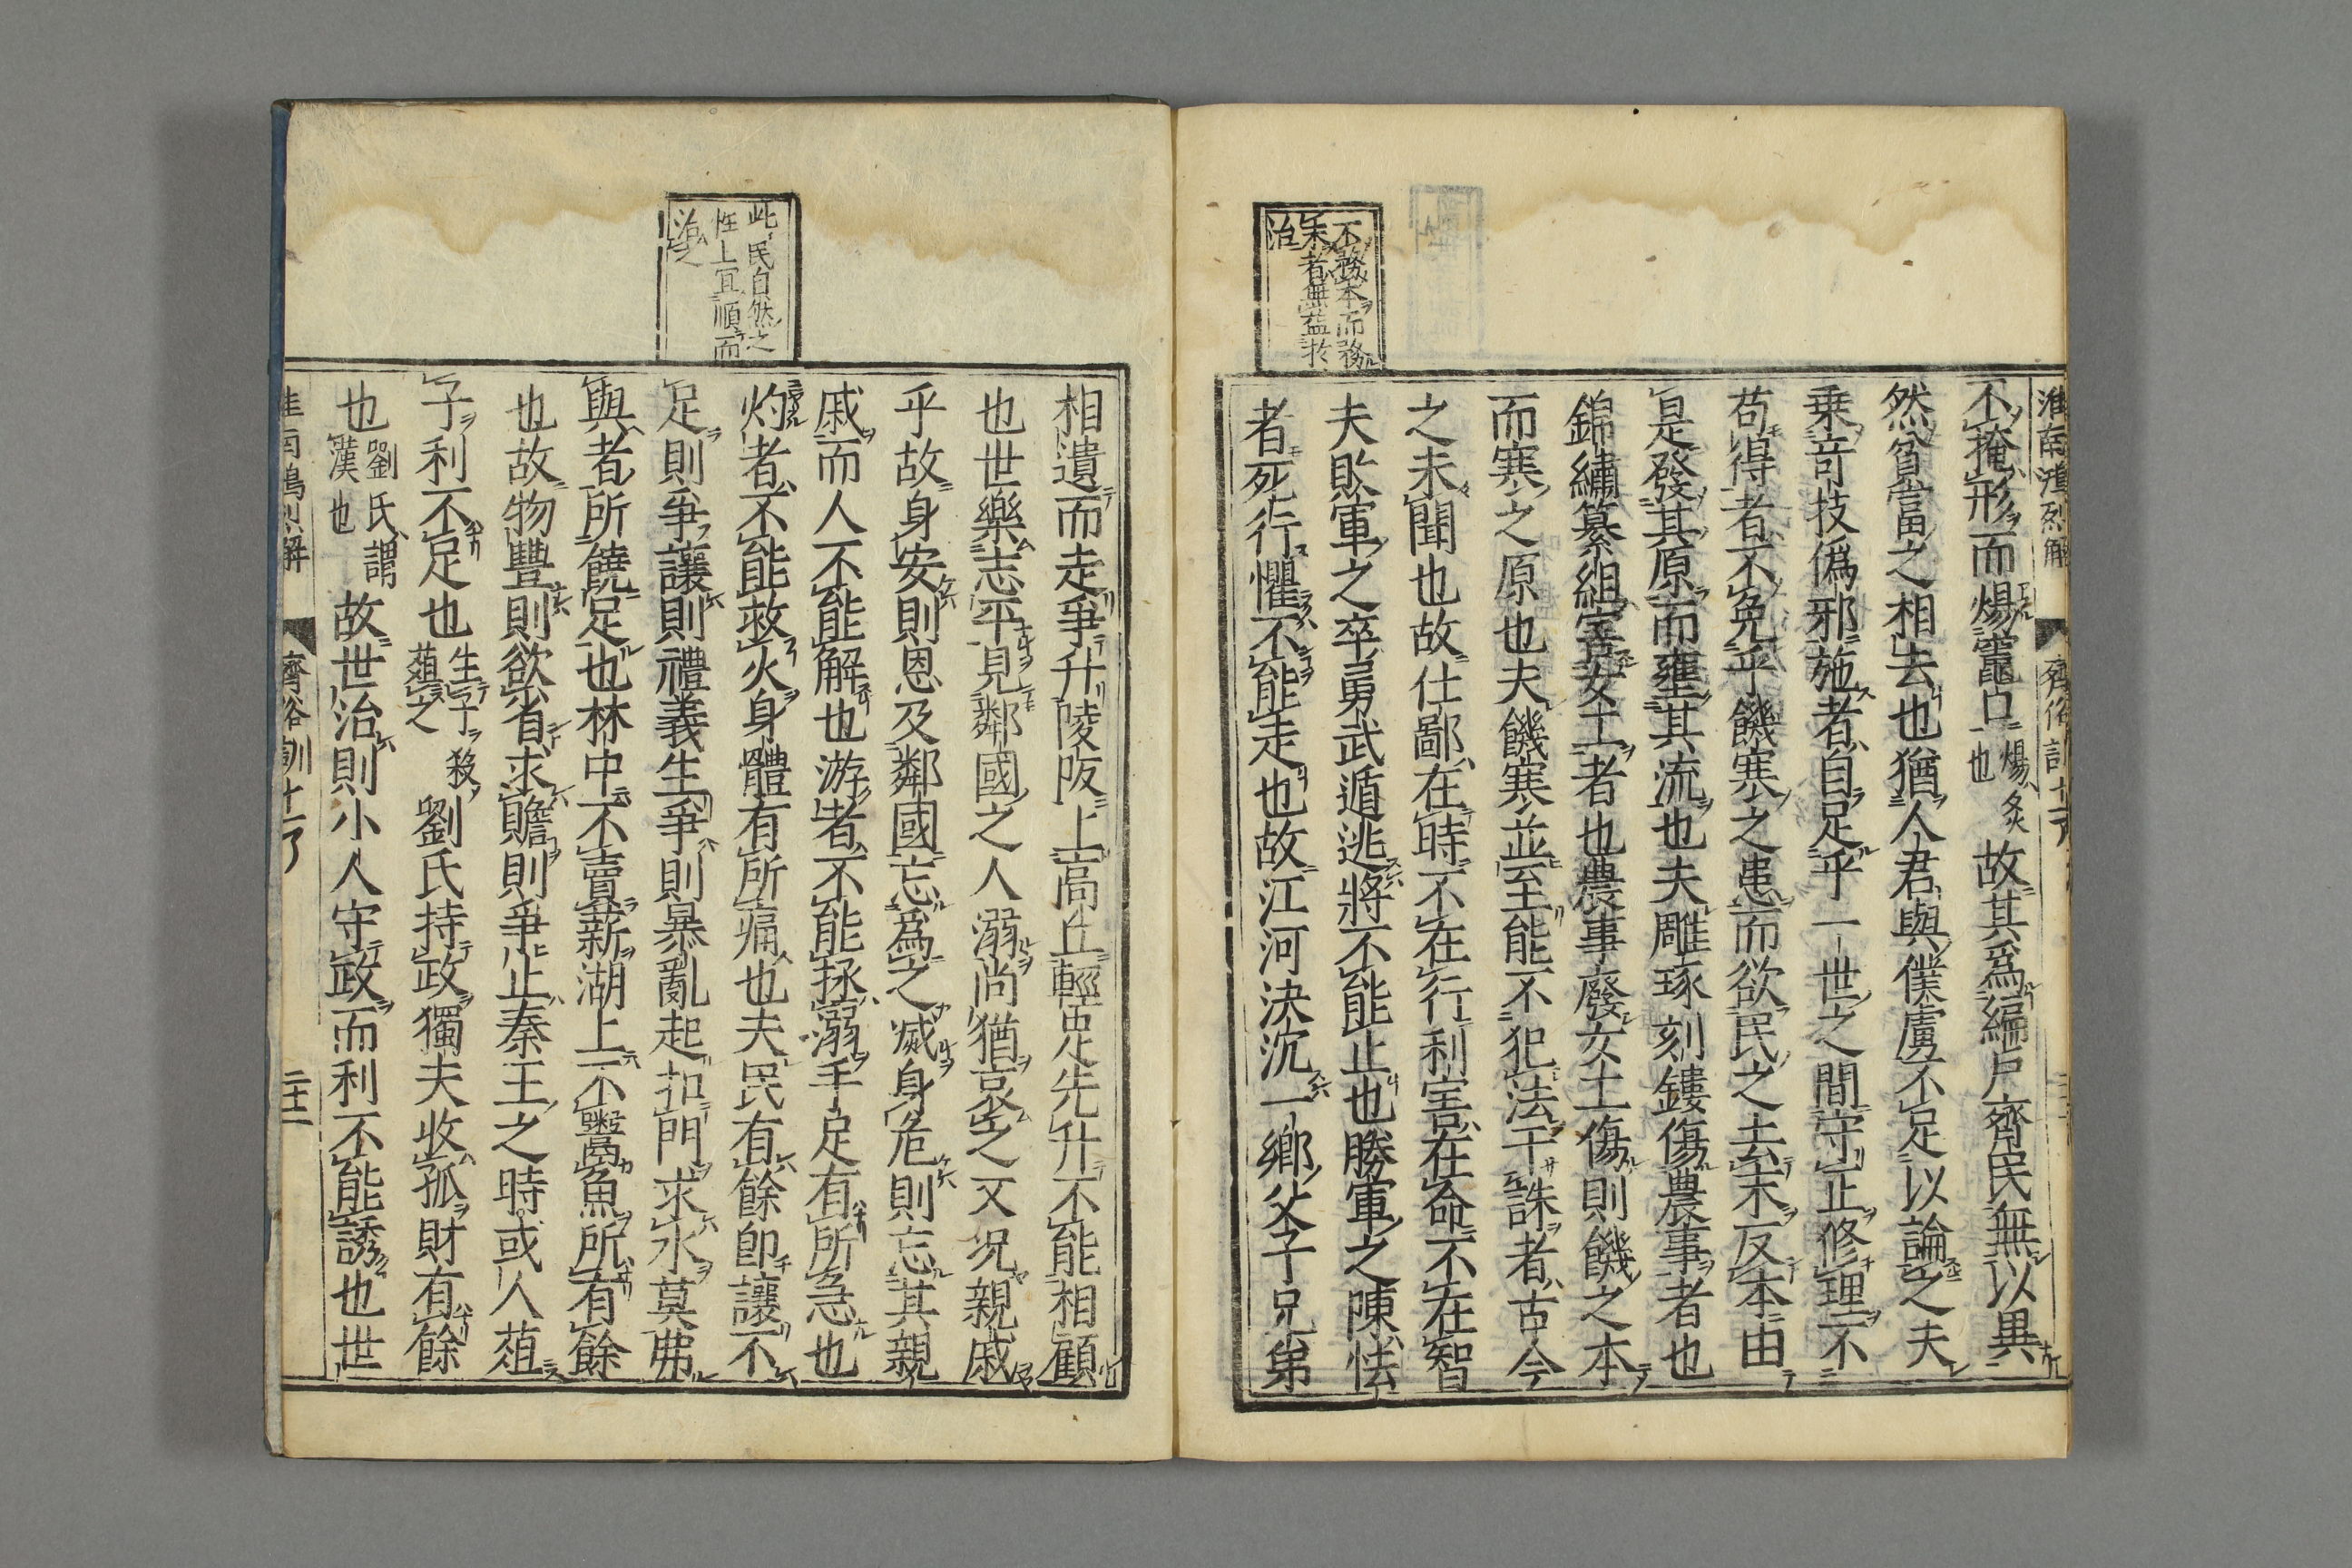 淮南鴻烈解 齊俗訓十一
不務本而務
末者無益於
治
不掩形而煬竈口煬炙也故其爲編戶齊民無以異
然貧富之相去也猶人君與僕虜不足以論之夫
乗竒技僞邪施者自足乎一世之間守正修理不
苟得者不免乎饑寒之患而欲民之去末反本由
是發其原而壅其流也夫雕琢刻鏤傷農事者也
錦繡纂組害女工者也農事廢女工傷則饑之本
而寒之原也夫饑寒並至能不犯法干誅者古今
之未聞也故仕鄙在時不在行利害在命不在智
夫敗軍之卒勇武遁逃將不能止也勝軍之陳怯
者死行懼不能走也故江河決沉一鄉父子兄弟
此民自然之
性上宜順而
治之
相遺而走爭升陵阪上高丘輕足先升不能相顧
也世樂志平見鄰國之人溺尚猶哀之又况親戚
乎故身安則恩及鄰國志爲之滅身危則忘其親
戚而人不能解也游者不能拯溺手足有所急也
灼者不能救火身體有所痛也夫民有餘卽讓不
足則爭讓則禮義生爭則暴亂起扣門求水莫弗
與者所饒足也林中不賣薪湖上不鬻魚所有餘
也故物豐則欲省求贍則爭止秦王之時或人葅
子利不足也生子殺葅之劉氏持政獨夫收孤財有餘
也劉氏謂漢也故世治則小人守政而利不能誘也世
淮南鴻烈解 齊俗訓十一 二十二